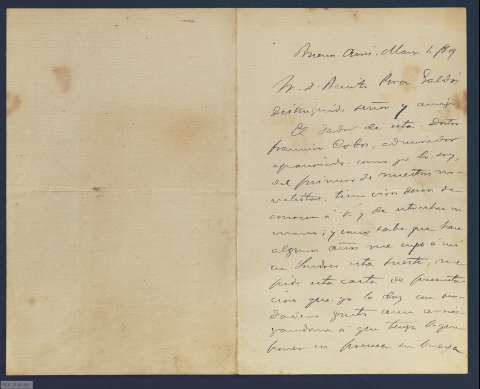 Buenos Aires. Marzo 1, 
Sr. D. Benito Perez Galdós
Distinguido señor y amigo
El dador de esta, Doctor
Francisco Cobos, admirador
apasionado, como yo lo soy,
del primero de nuestros no-
velistas, tiene vivos deseos de
conocer á V. y de estrechar su
mano; y como sabe que hace
algunos años me cupo á mí
en Londres esta suerte, me
pide esta carta de presenta-
ción que yo le doy con
gusto
á que tenga
poner en prensa su